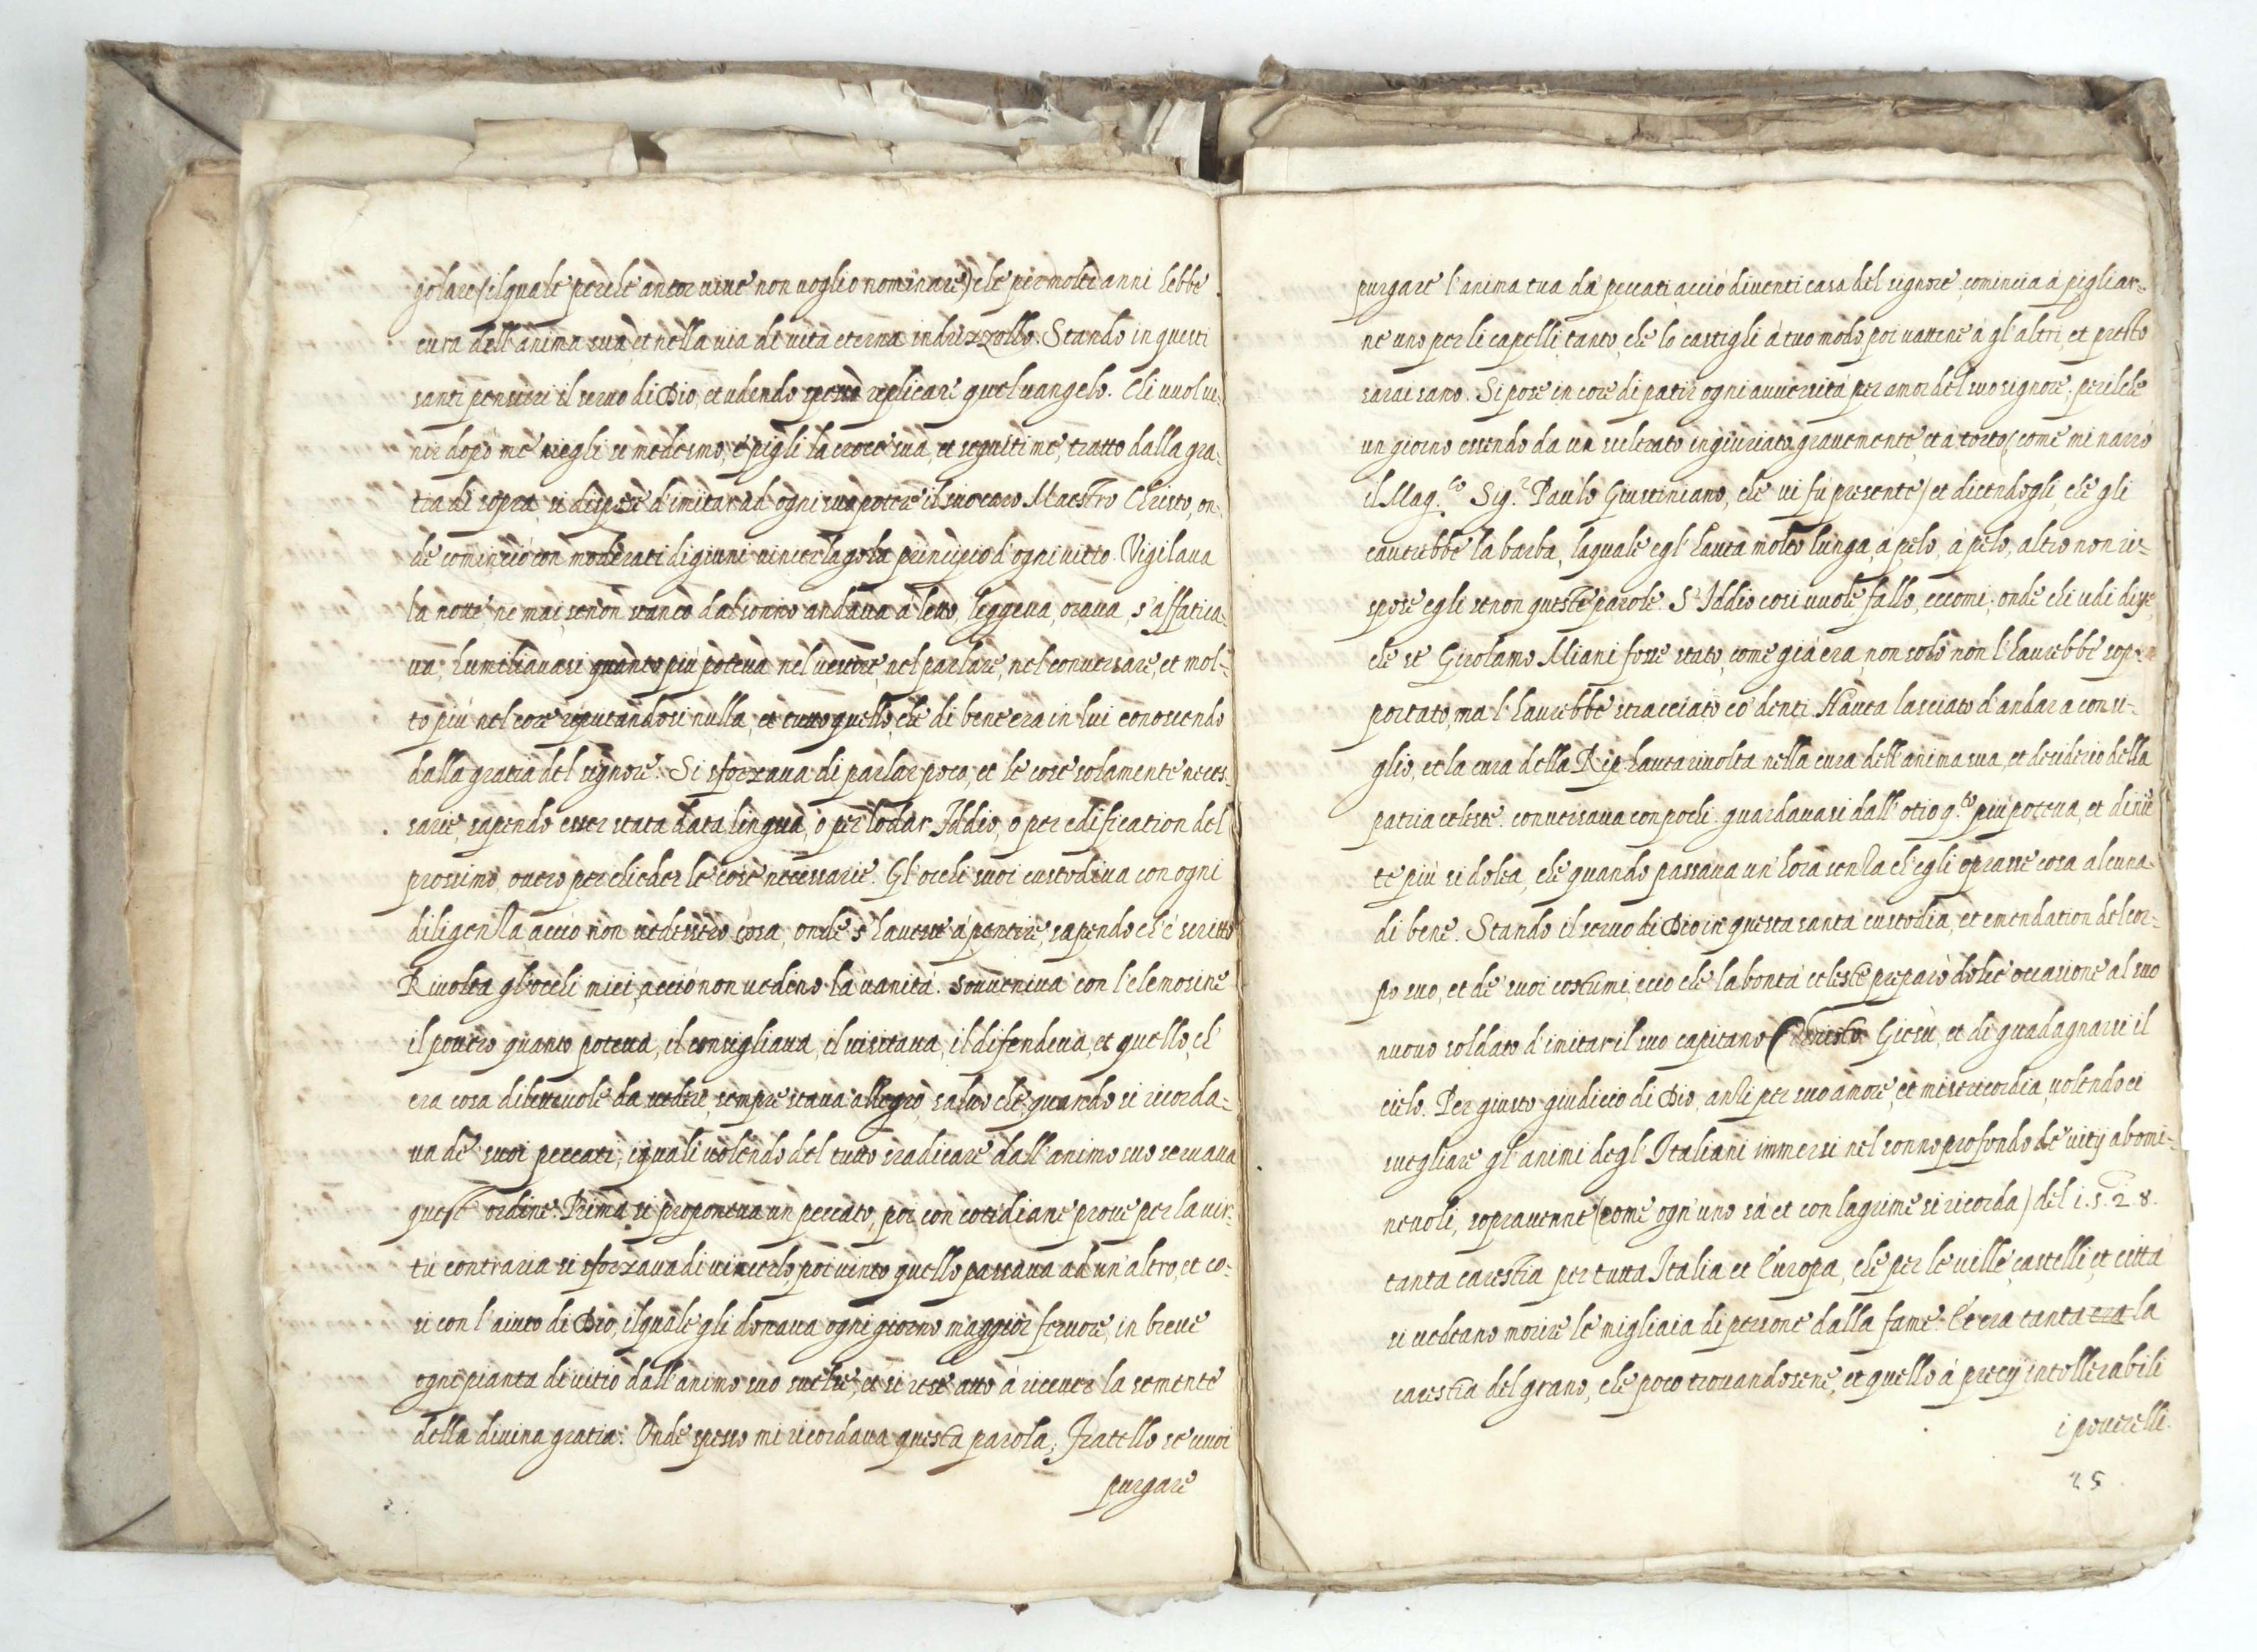 golare (ilquale perche ancor vive non voglio nominare) che per molti anni hebbe
cura dell'anima sua, et nella via de vita eterna indrizzollo. Stando in questi
santi pensieri il servo di Dio, et udendo spesso replicare quel vangelo. Chi vuol ve-
nir dopo me nieghi se medesmo, e pigli la croce sua, et seguiti me, tratto dalla gra-
tia di sopra, si dispose d'imitar ad ogni suo potere il suo caro Maestro Christo, on-
de cominciò con moderati digiuni vincer la gola principio d'ogni vitio. Vigilava
la notte, ne mai senon stanco dal sonno andava à letto, leggeva, orava, s'affatica-
va, humiliavasi quanto più poteva nel vestire, nel parlare, nel conversare, et mol-
to più nel core reputandosi nulla, et tutto quello, che di bene era in lui conoscendo
dalla gratia del signore. Si sforzava di parlar poco, et le cose solamente neces-
sarie, sapendo esser stata data lingua, ò per lodar Iddio, o per edification del
prossimo, overo per chieder le cose necessarie. Gl'occhi suoi custodiva con ogni
diligenza acciò non vedessero cosa, onde s'havesse à pentire, sapendo ch'è scritto
Rivolta gl'occhi miei, acciò non vedino la vanità. Souveniva con l'elemosine
il povero quanto poteva, il consigliava, il visitava, il difendeva, et quello, ch'
era cosa dilettevole da vedere, sempre stava allegro, salvo che quando si ricorda-
va de' suoi peccati, iquali volendo del tutto sradicare dall'animo suo servava
quest' ordine. Prima si proponeva un peccato, poi con cotidiane prove per la vir-
tù contraria si sforzava di vincerlo, poi vinto quello passava ad un'altro, et co-
si con l'aiuto di Dio, ilquale gli donava ogni giorno maggior fervore, in breve
ogni pianta di vitio dall'animo suo svelse, et si rese atto à ricever la semente
della divina gratia. Onde spesso mi ricordava questa parola, Fratello se vuoi
purgare
purgare l'anima tua da peccati acciò diventi casa del signore, comincia à pigliar-
ne uno per li capelli tanto, che lo castighi à tuo modo, poi vattene à gl'altri, et presto
sarai sano. Si pose in core di patir ogni avversità per amor del suo signore, perilche
un giorno essendo da un scelerato ingiuriato gravemente, et à torto (come mi narrò
il Mag.co Sig.r Paulo Giustiniano, che vi fù presente) et dicendogli, che gli
cavarebbe la barba, laquale egl' havea molto lunga, à pelo, à pelo, altro non ri-
spose egli senon queste parole. S'Iddio cosi vuole, fallo, eccomi, onde chi udì disse,
che se Girolamo Miani fosse stato, come già era, non solo non l'haurebbe sop-
portato, ma l'haurebbe stracciato co' denti. Havea lasciato d'andar a consi-
glio, et la cura della Rep. havea rivolta nella cura dell'anima sua, et desiderio della
patria celeste. conversava con pochi. guardavasi dall'otio q.to più poteva, et di nie-
te più si dolea, che quando passava un'hora senza ch'egli oprasse cosa alcuna
di bene. Stando il servo di Dio in questa santa custodia, et emendation del cor-
po suo, et de' suoi costumi, ecco che la bontà celeste preparò dolce occasione al suo
nuovo soldato d'imitar il suo capitano Christo Giesù, et di guadagnarsi il
cielo. Per giusto giudicio di Dio, anzi per suo amore, et misericordia, volendo ei
svegliare gl'animi degl'Italiani immersi nel sonno profondo de' vitij abomi-
nevoli, sopravenne (come ogn'uno sà et con lagrime si ricorda) del 1.5.2.8.
tanta carestia per tutta Italia et Europa, che per le ville, castelli, et città
si vedeano morire le migliaia di persone dalla fame. Et era tanta era la
carestia del grano, che poco trovandosene, et quello à precij intollerabili
i poverelli.
25